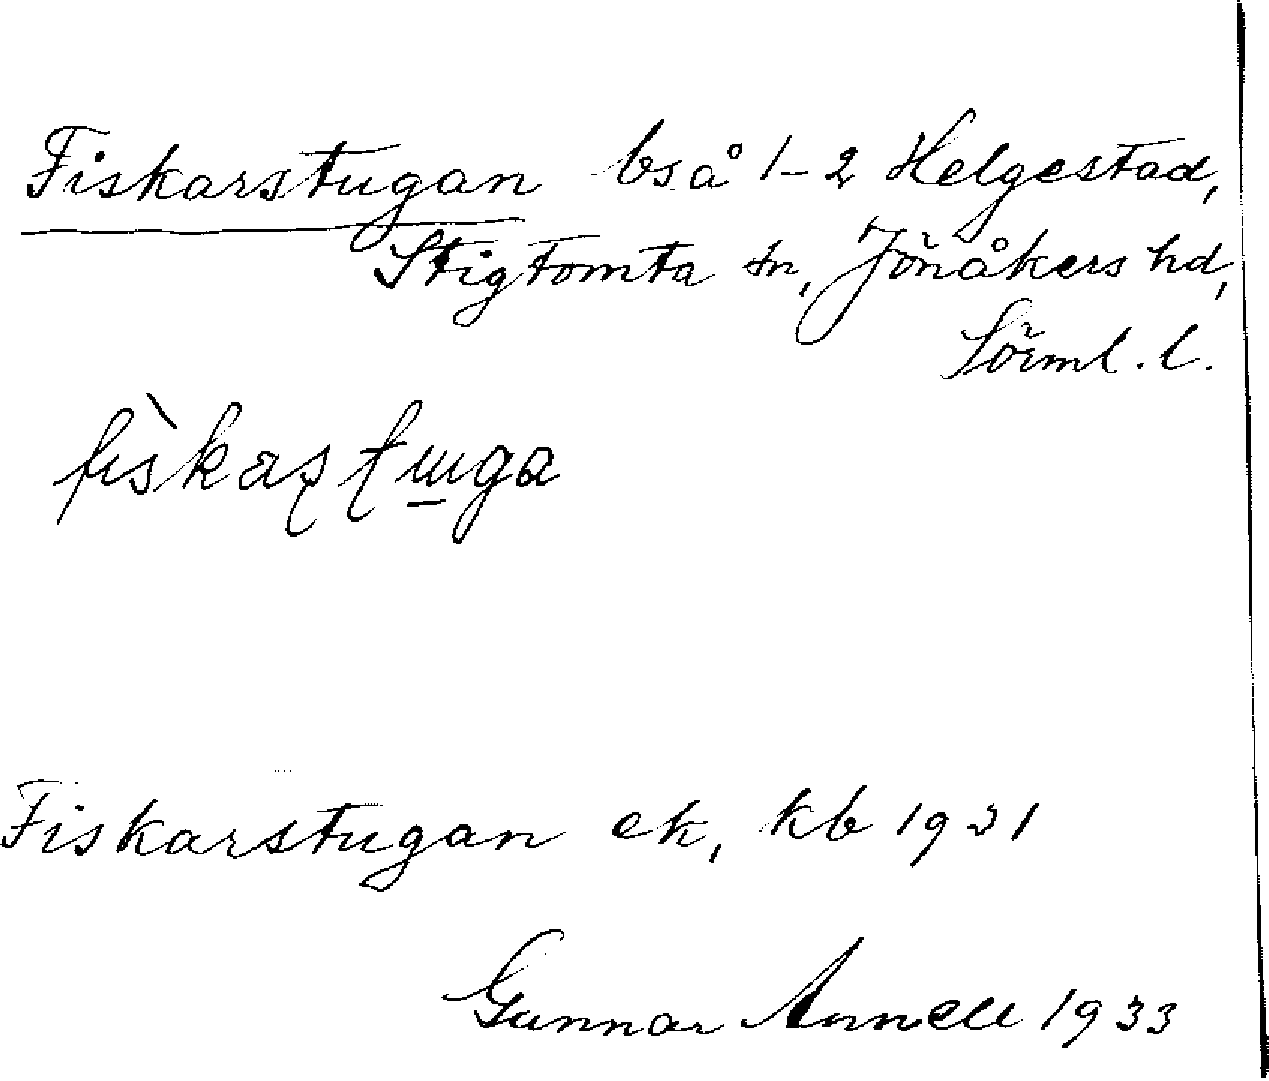 Fiskarstugan bså 1-2 Helgestad,
Stigtomta sn, Jönåkers hd,
Sörml. l.
Fiskarstugan ek, kb 1931
Gunnar Annell 1933